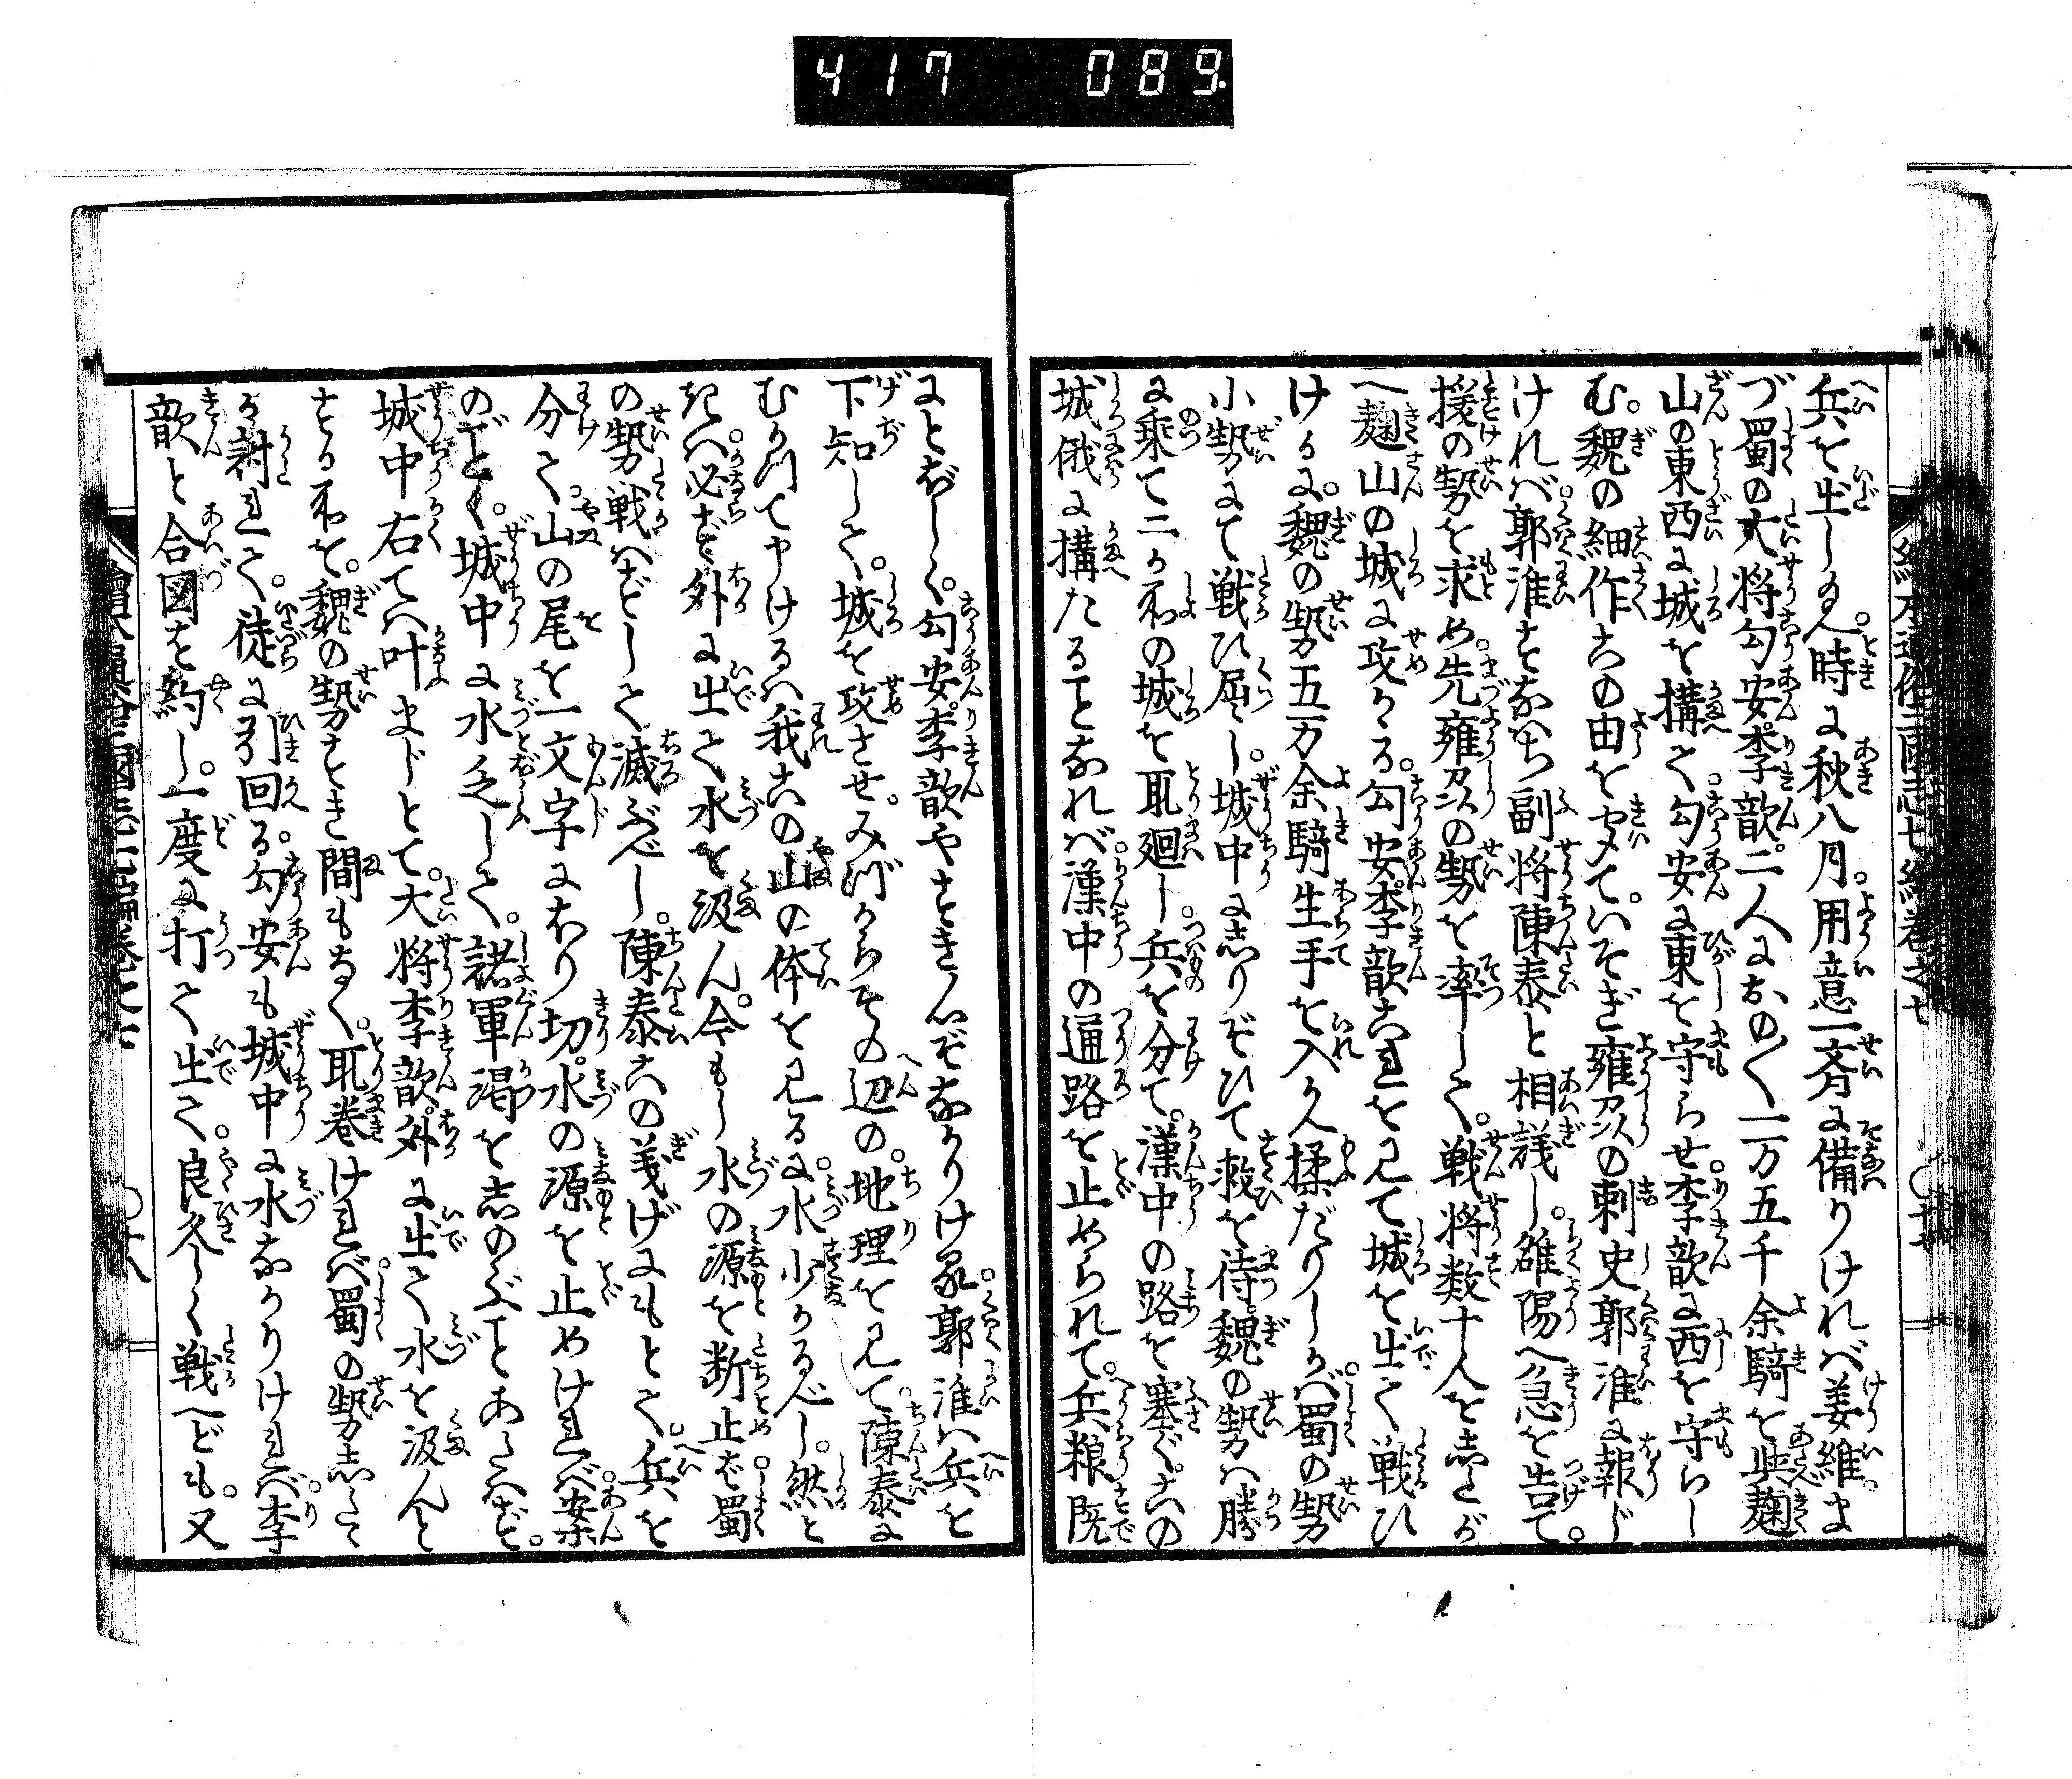 417 089
兵を出しゐん。時に秋八月。用意一斉に備りければ姜維。ま
づ蜀の大将勾安。李歆。二人におの〱一万五千余騎を与。麹
山の東西に城を構て。勾安に東を守らせ。李歆に西を守らし
む。魏の細作この由をきいて。いそぎ雍州の刺史郭淮に報じ
ければ。郭淮すなはち副将陳泰と相議し。雒陽へ急を告て。
援の勢を求め。先雍州の勢を率して。戦将数十人をしたが
へ麹山の城に攻かゝる。勾安。李歆これを見て城を出て戦ひ
けるに。魏の勢五万余騎生手を入かへ揉だりしかば。蜀の勢
小勢にて戦ひ屈し。城中にしりぞひて救を待。魏の勢は勝
に乗て二か所の城を取廻し。兵を分て。漢中の路を塞ぐ。この
城俄に構たることなれば。漢中の通路を止められて。兵粮既
にとぼしく。勾安。李歆やすきこゝろぞなかりける。郭淮は兵を
下知して。城を攻させ。みづからその辺の。地理を見て。陳泰に
むかつて申けるは我この山の体を見るに。水少かるべし。然と
きは。必ず外に出て水を汲ん。今もし水の源を断止ば。蜀
の勢戦はずして滅ぶべし。陳泰この義げにもとて。兵を
分て。山の尾を一文字にほり切。水の源を止めければ。案
のごとく。城中に水乏して。諸軍渇をしのぶことあたはず。
城中右ては叶まじとて。大将李歆。外に出て水を汲んと
する所を。魏の勢すき間もなく。取巻ければ。蜀の勢したゝ
か討れて。徒に引回る。勾安も城中に水なかりければ。李
歆と合図を約し。一度に打て出て。良久しく戦へども。又